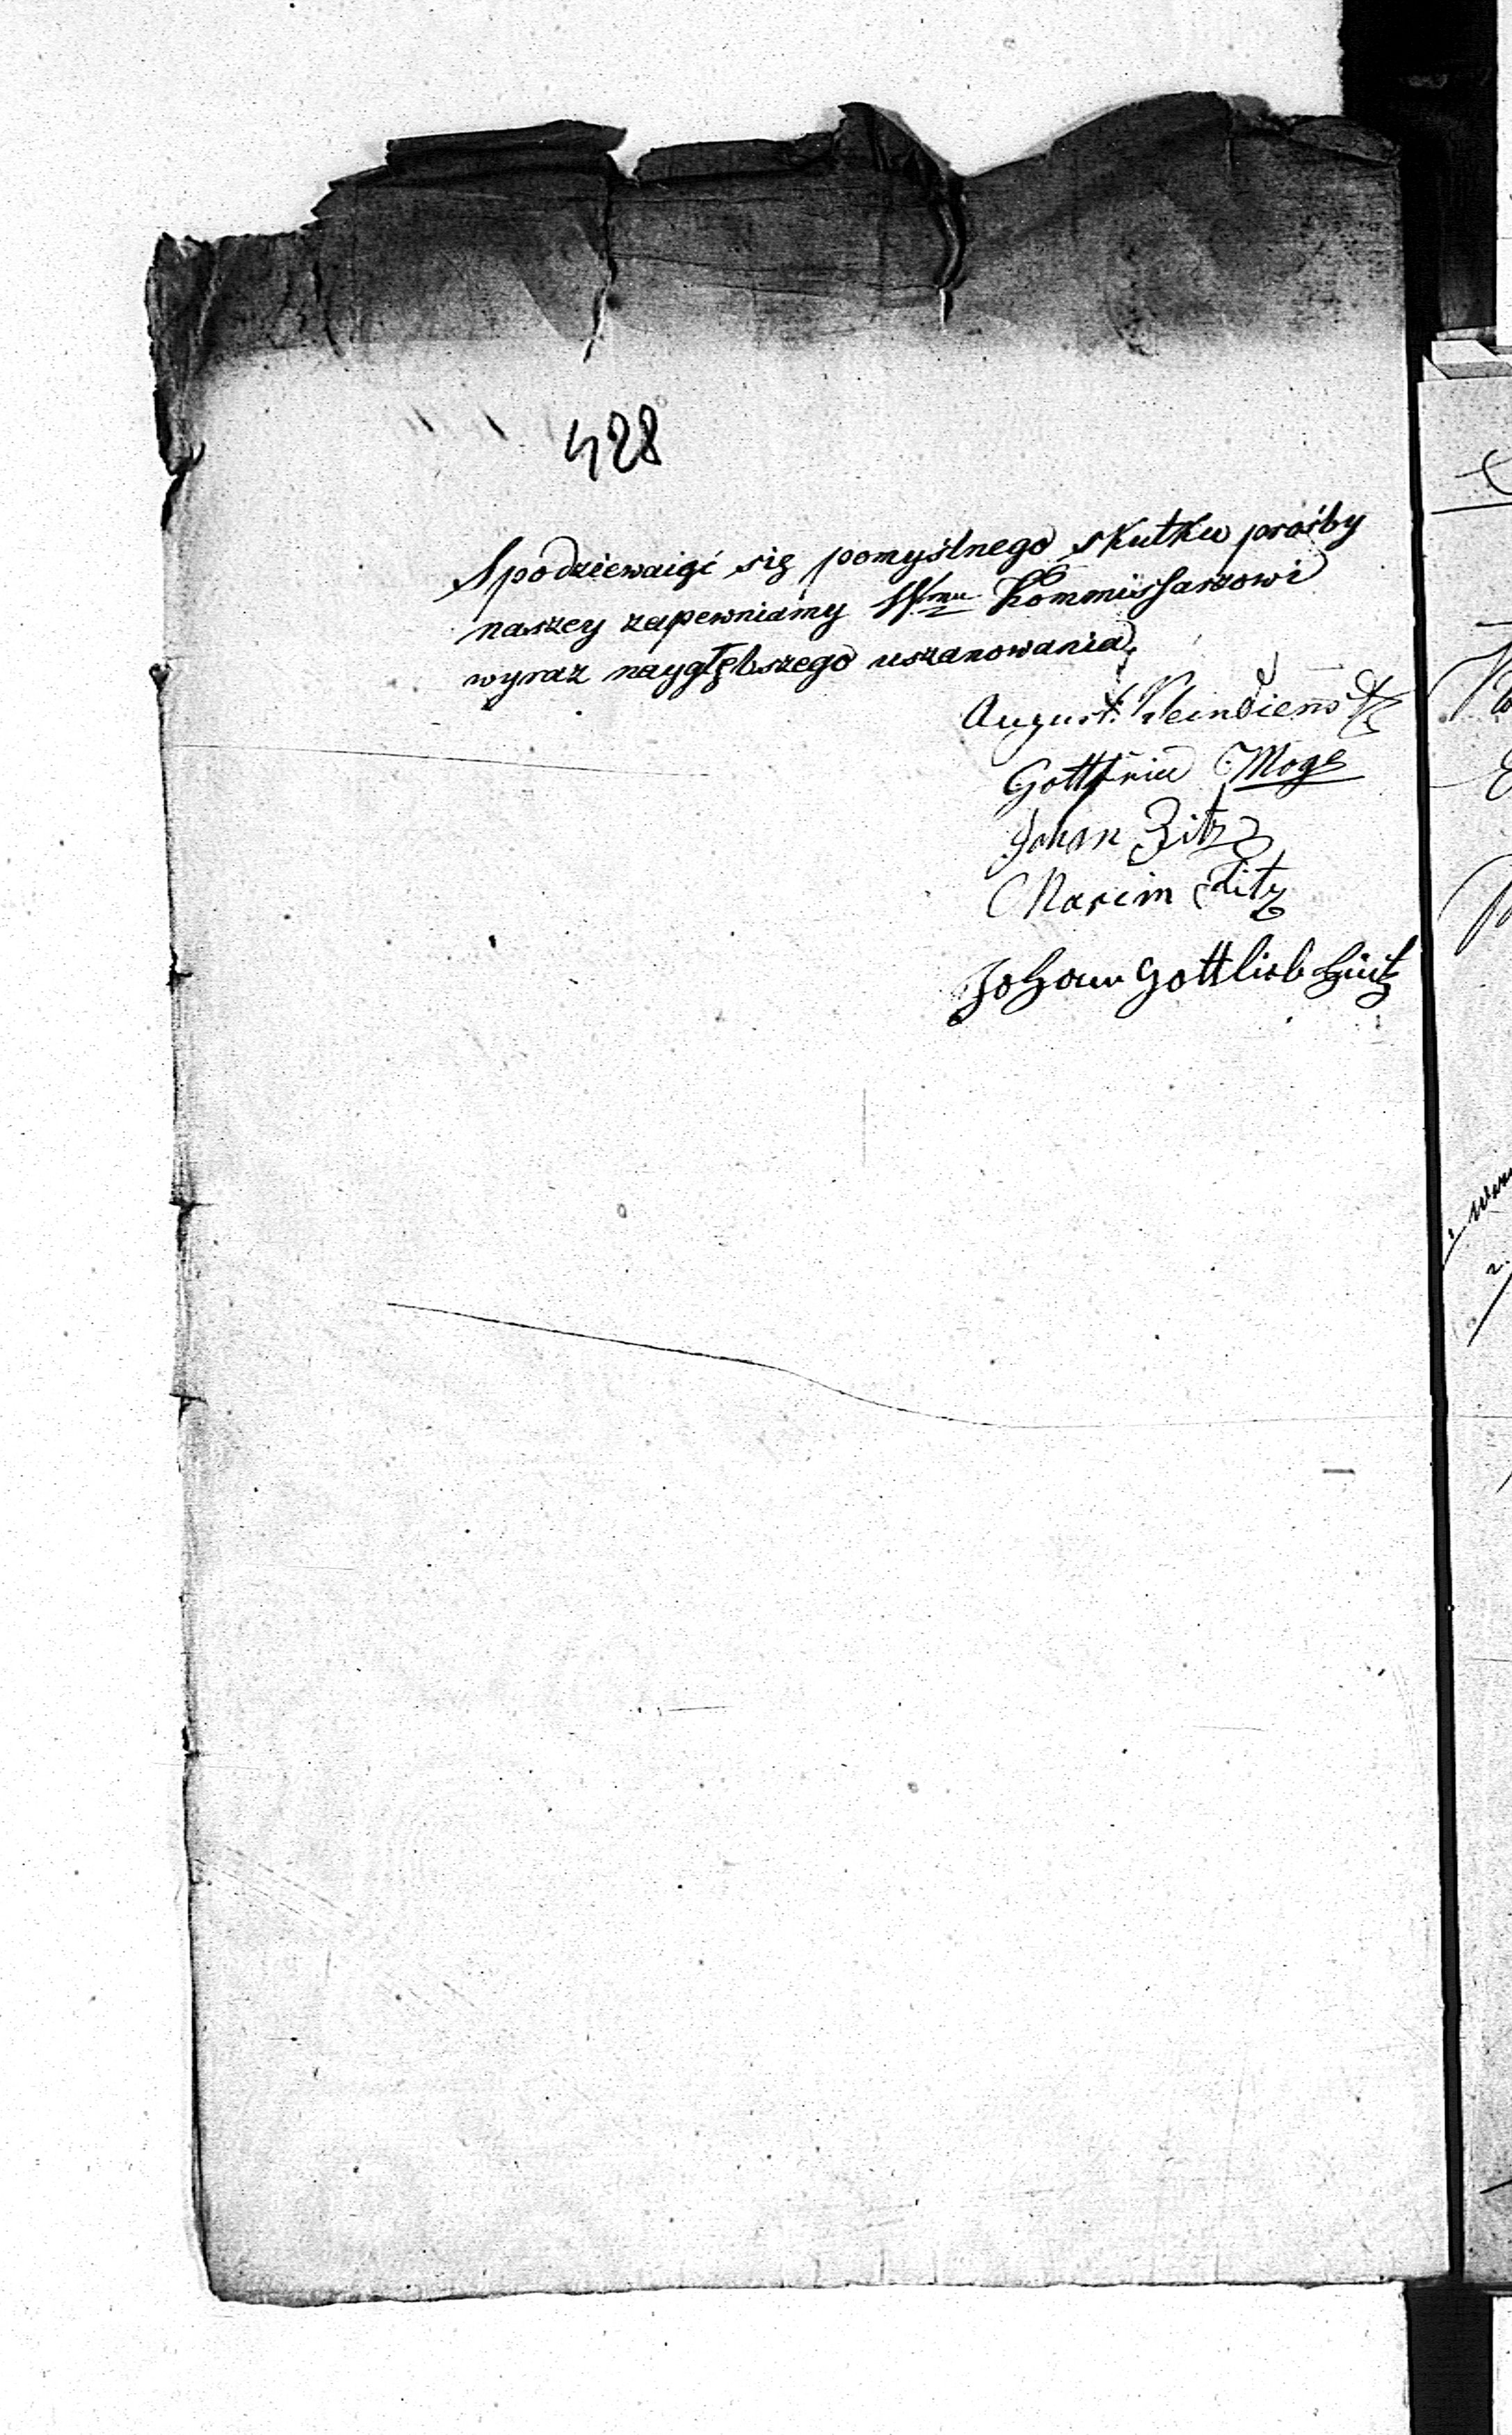 428
Spodziewaiąc się pomyślnego skutku prośby
naszey zapewniamy Wmu Kommissarzowi
wyraz naygłębszego uszanowania.
August
Gottfried Moge
Johan Zitz
Zitz
Johann Gottlieb